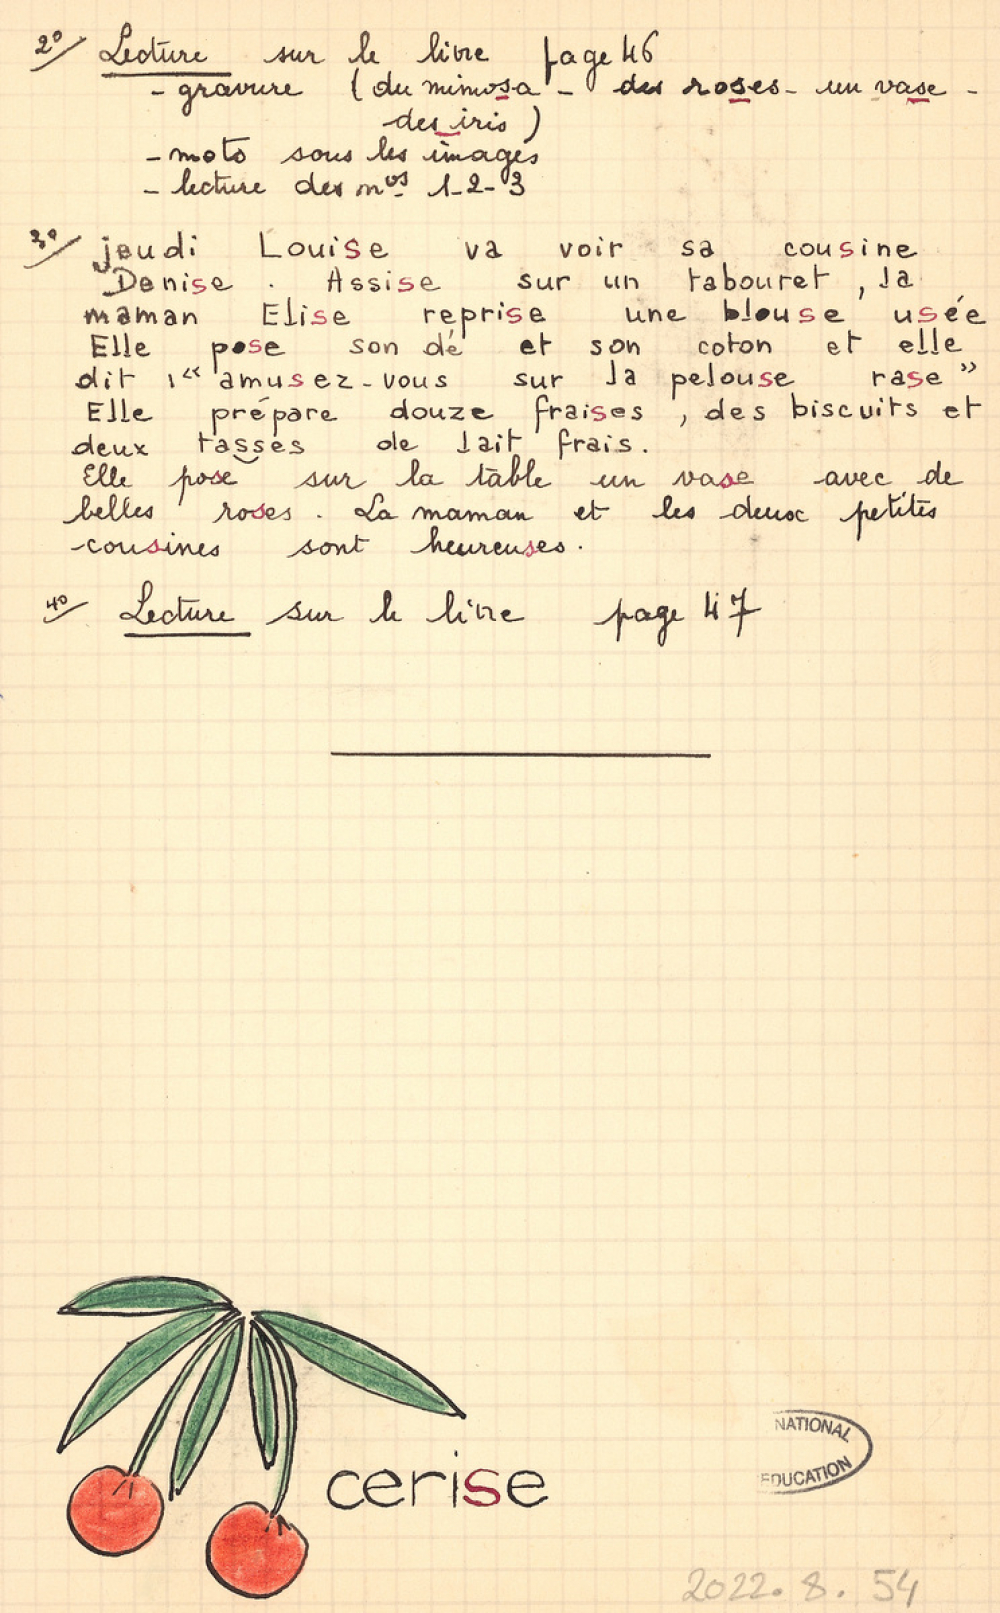 2º/ Lecture sur le livre page 46
- gravure (du mimosa - des roses - un vase -
des iris)
- mots sous les images
- lecture des nos 1-2-3
3º/ jeudi Louise va voir sa cousine
Denise . Assise sur un tabouret , la
maman Elise reprise une blouse usée
Elle pose son dé et son coton et elle
dit : “ amusez-vous sur la pelouse rase ”
Elle prépare douze fraises , des biscuits et
deux tasses de lait frais .
Elle pose sur la table un vase avec de
belles roses . La maman et les deux petites
cousines sont heureuses .
4º/ Lecture sur le livre page 47
cerise
NATIONAL
EDUCATION
2022. 8. 54